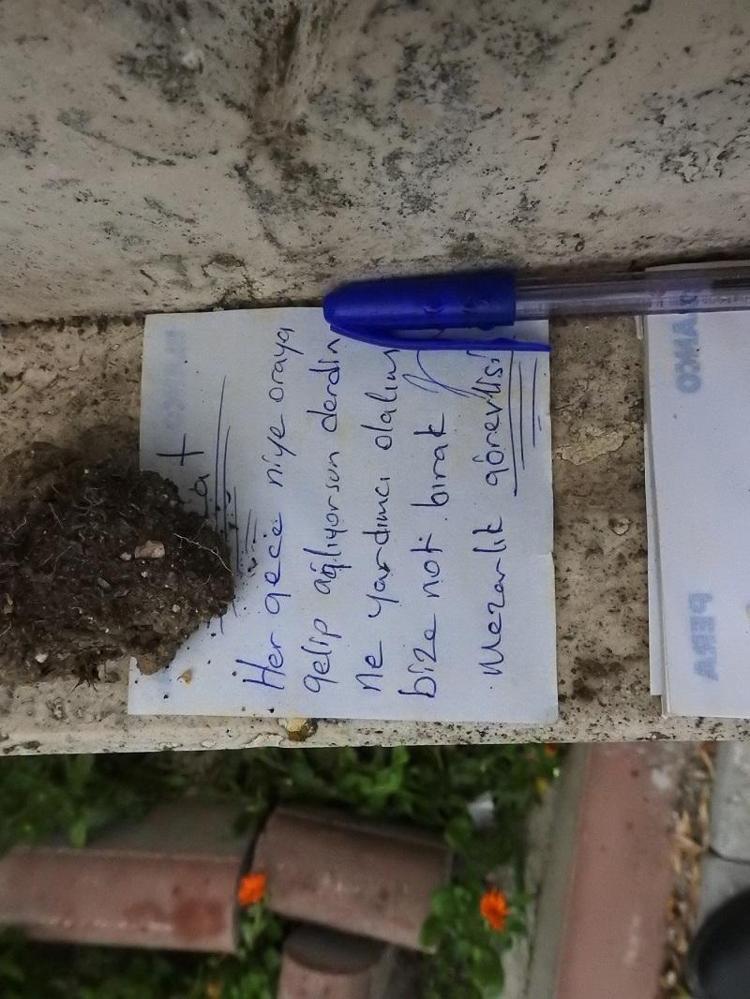 Her gece niye oraya
gelip ağlıyorsun derdin
ne yardımcı olalım
bize not bırak
Mezarlık görevlisi
BIANCO
PERA